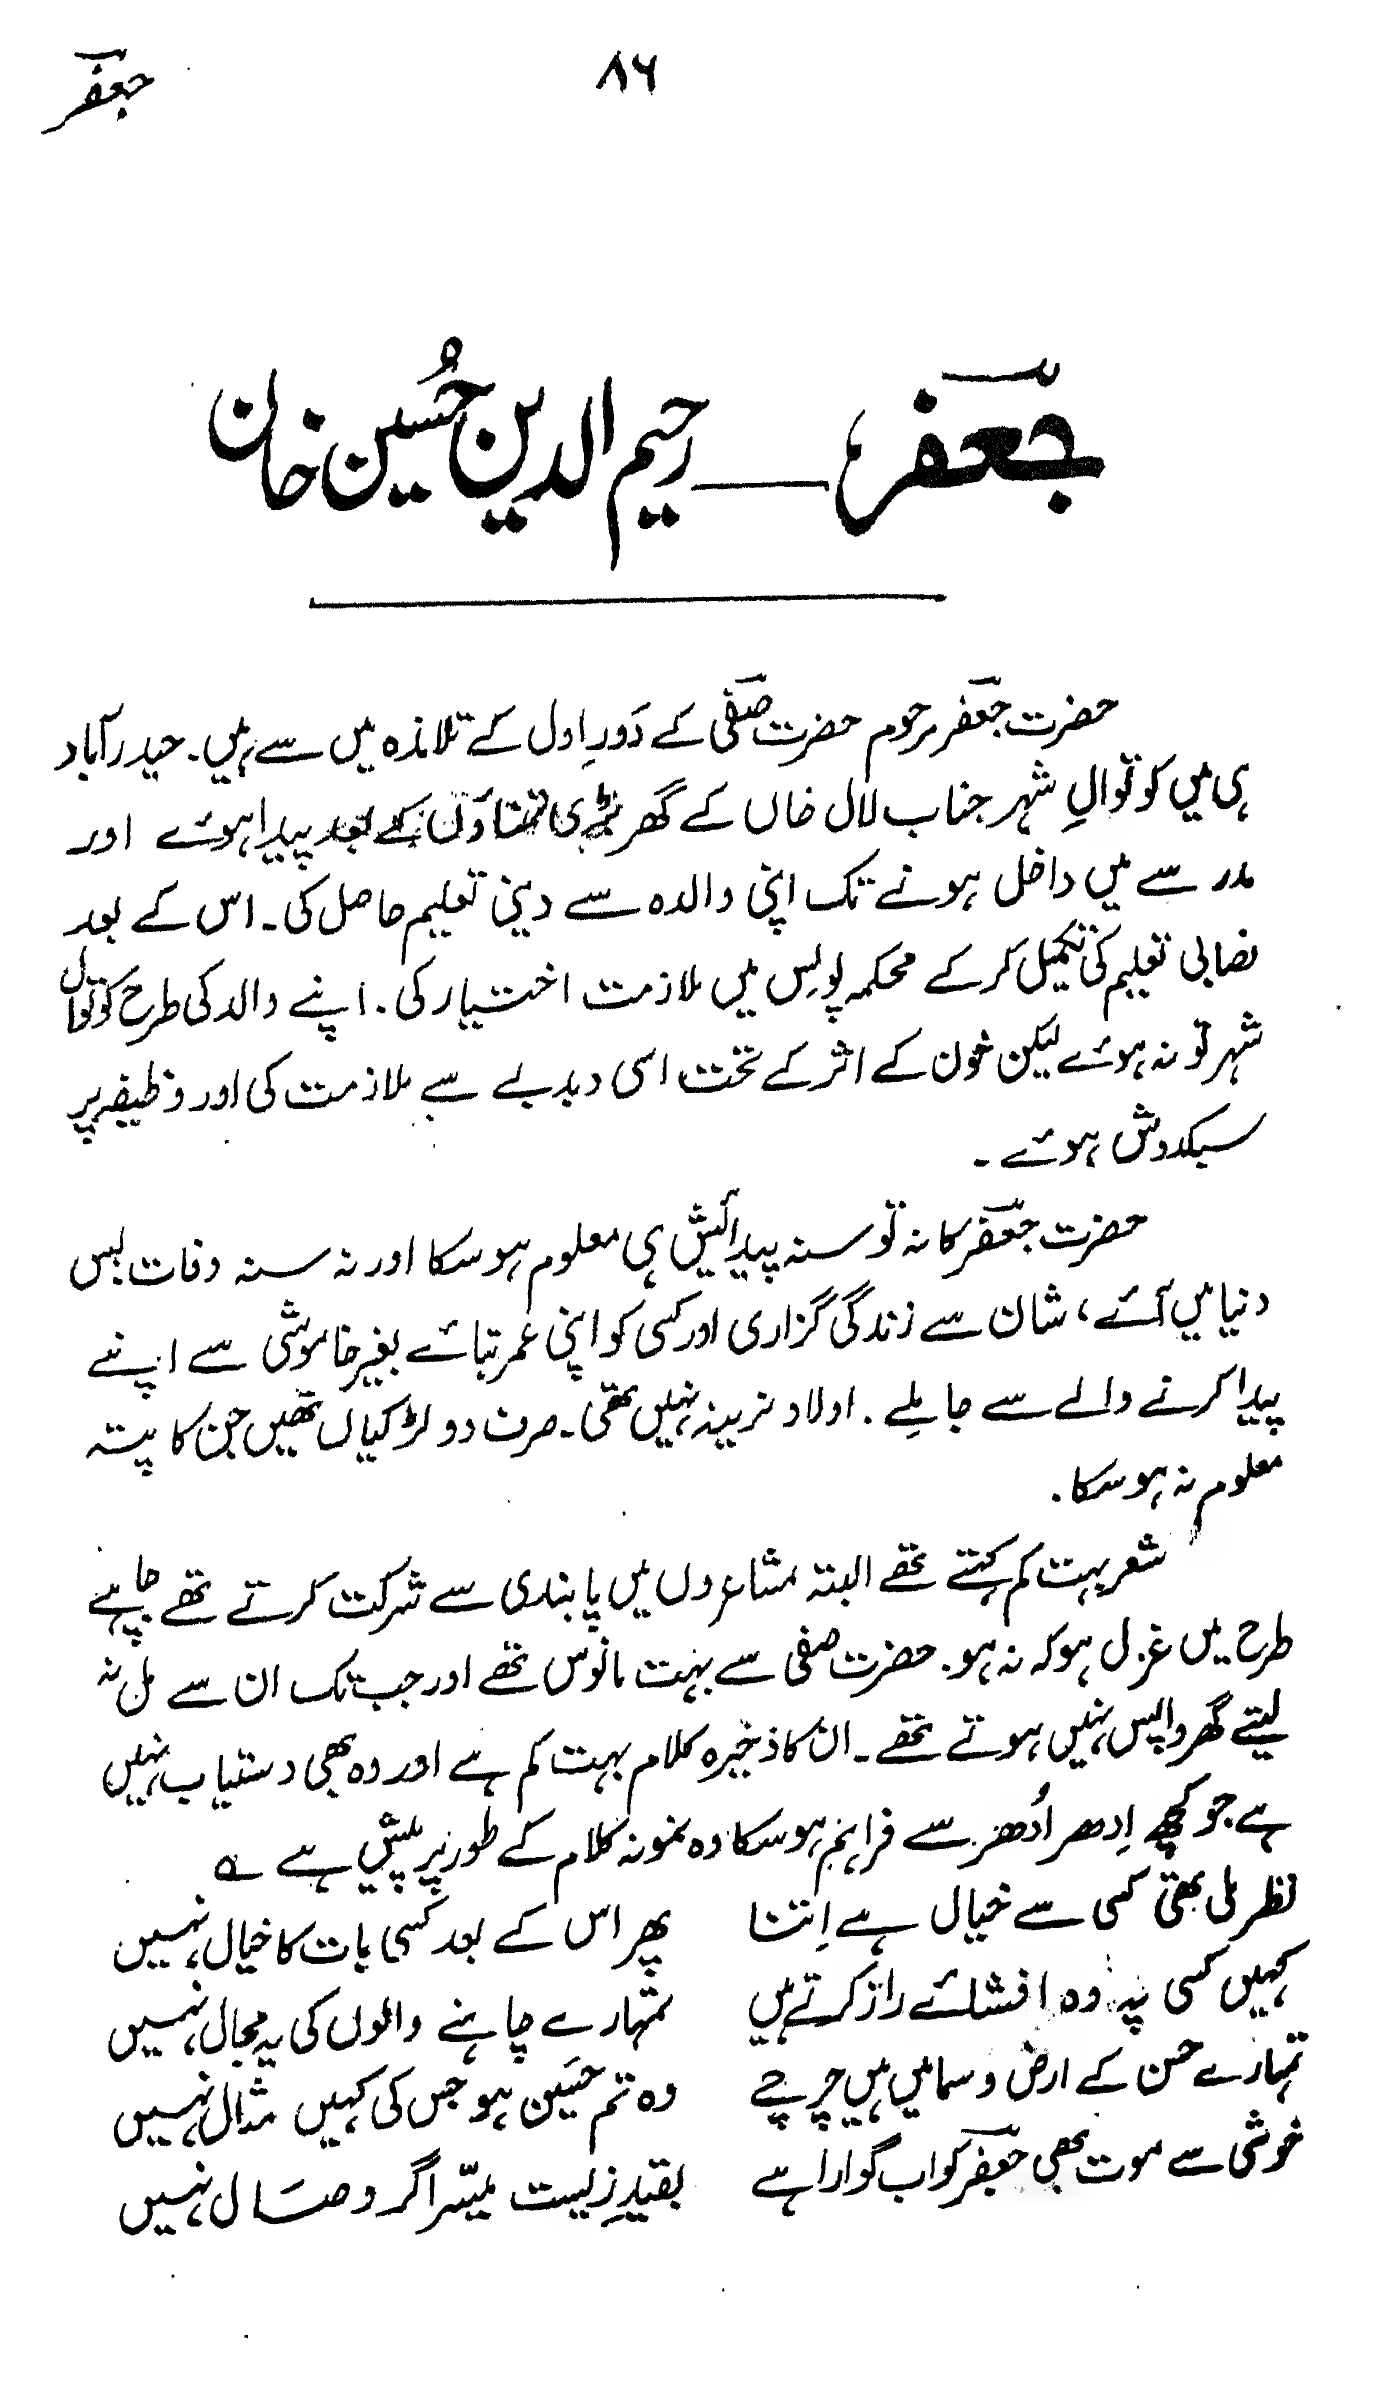 جعفرؔ
۸۶
جعفرؔ، ـــ رحیم الدین حُسین خان
حضرت جعفرؔ مرحوم حضرت صفیؔ کے دَورِ اول کے تلامذہ میں سے ہیں۔ حیدرآباد
ہی میں کوتوالِ شہر جناب لال خاں کے گھر بڑی تمناؤں کے بعد پیدا ہوئے اور
مدرسے میں داخل ہونے تک اپنی والدہ سے دینی تعلیم حاصل کی۔ اس کے بعد
نصابی تعلیم کی تکمیل کرکے محکمہ پولس میں ملازمت اختیار کی۔ اپنے والد کی طرح کوتوال
شہر تو نہ ہوئے لیکن خون کے اثر کے تحت اسی دبدبے سے ملازمت کی اور وظیفہ پر
سبکدوش ہوئے۔
حضرت جعفرؔ کا نہ تو سنہ پیدائش ہی معلوم ہوسکا اور نہ سنہ وفات بس
دنیا میں آئے، شان سے زندگی گزاری اور کسی کو اپنی عمر بتائے بغیر خاموشی سے اپنے
پیدا کرنے والے سے جا ملے۔ اولاد نرینہ نہیں تھی۔ صرف دو لڑکیاں تھیں جن کا پتہ
معلوم نہ ہوسکا۔
شعر بہت کم کہتے تھے البتہ مشاعروں میں پابندی سے شرکت کرتے تھے چاہے
طرح میں غزل ہو کہ نہ ہو۔ حضرت صفی سے بہت مانوس تھے اور جب تک ان سے مل نہ
لیتے گھر واپس نہیں ہوتے تھے۔ ان کا ذخیرہ کلام بہت کم ہے اور وہ بھی دستیاب نہیں
ہے جو کچھ اِدھر اُدھر سے فراہم ہوسکا وہ نمونہ کلام کے طور پر پیش ہے ؎
نظر ملی تھی کسی سے خیال ہے اِتنا پھر اس کے بعد کسی بات کا خیال نہیں
کہیں کسی پہ وہ افشائے راز کرتے ہیں تمہارے چاہنے والوں کی یہ مجال نہیں
تمہارے حسن کے ارض و سما میں ہیں چرچے وہ تم حَسین ہو جس کی کہیں مثال نہیں
خوشی سے موت بھی جعفرؔ کو اب گوارا ہے بقیدِ زیست میسّر اگر وصال نہیں